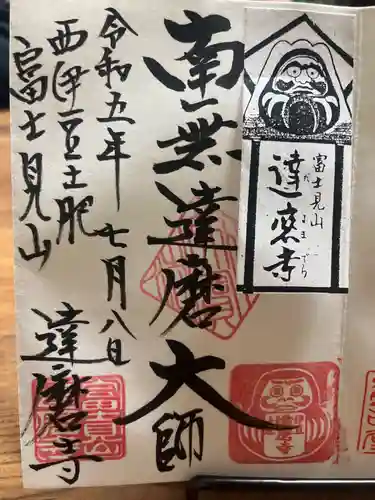 富士見山
だるまでら
達磨寺
南無達磨大師
令和五年七月八日
西伊豆土肥
富士見山
達磨寺